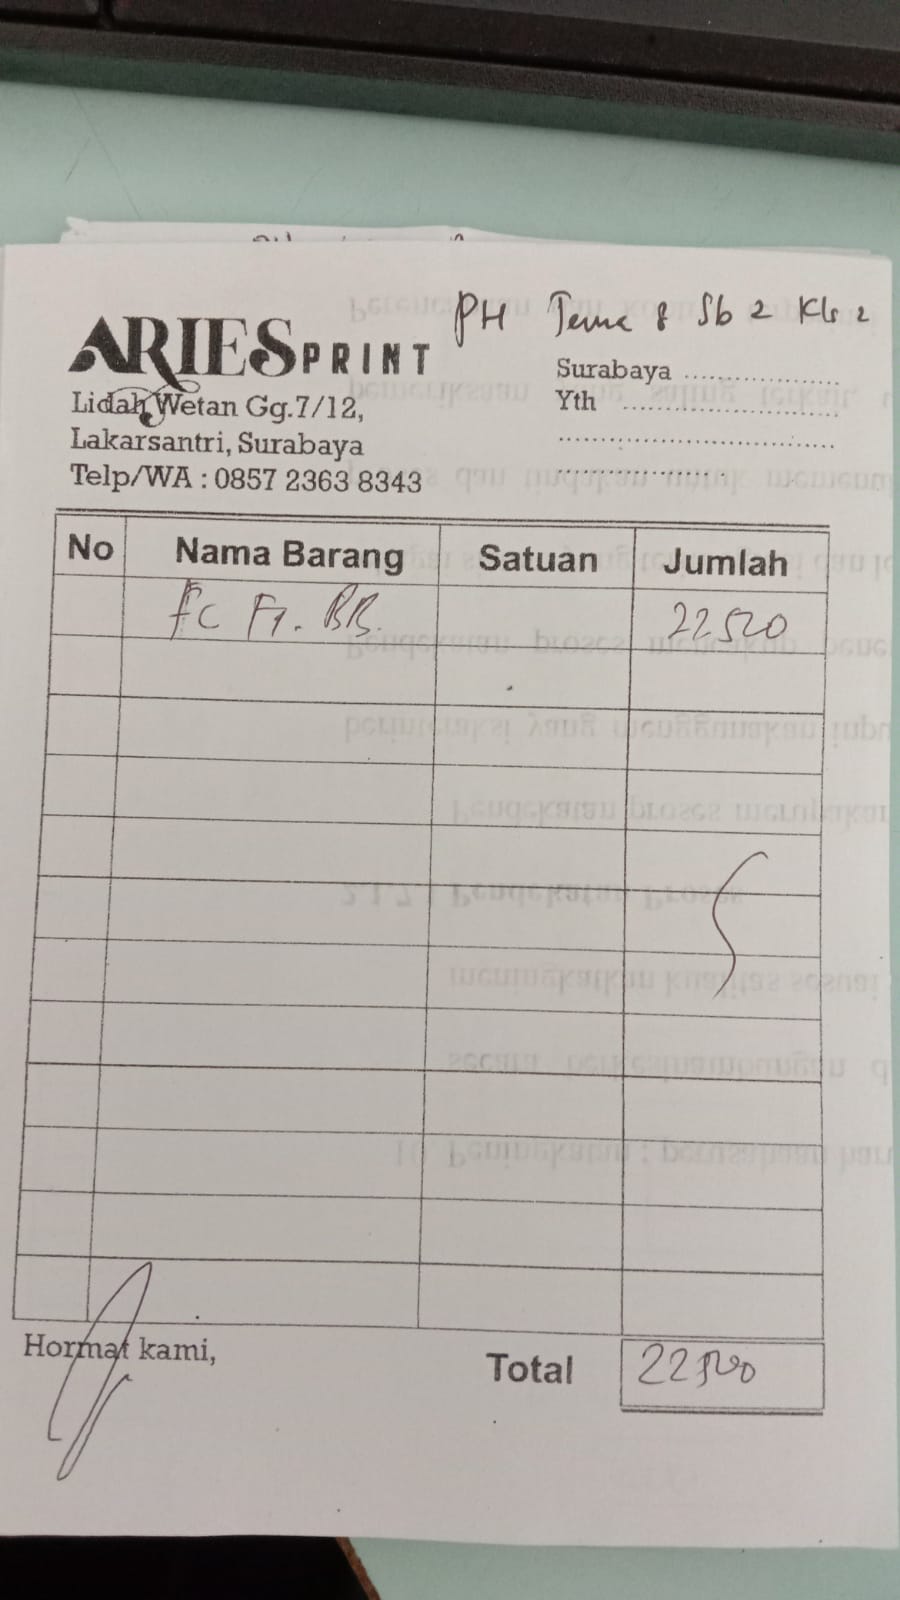 PH Tema 8 Sb 2 Kls 2
ARIES PRINT
Lidah Wetan Gg.7/12,
Lakarsantri, Surabaya
Telp/WA : 0857 2363 8343
Surabaya ....................
Yth ............................
....................................
......................
No Nama Barang Satuan Jumlah
Fc F4. BB. 22500
Hormat kami,
Total 22500